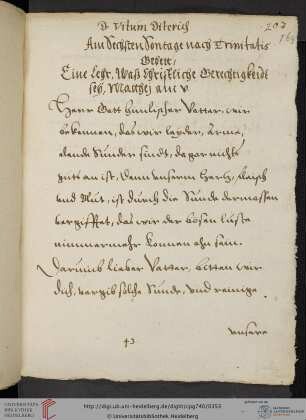 D Vitum Diterich
203
Am Sechsten Sontage nach Trinitatis
Gebett,
Eine Lehr, Waß Christliche Gerechtigkeidt
sey, Matthej am v
Herr Gott himlischer Vatter, wir
bekennen, das wir leyder, arme,
elende Sunder sindt, da gar nichts
guts an ist, denn unserm hertz, fleisch
und blut, ist durch die Sunde dermassen
vergifftet, das wir der bösen lüste
nimmermehr können ohn sein.
Darumb lieber Vatter, bitten wir
dich, vergib solche Sunde, und reinige
unsere
43
UNIVERSITÄTS-
BIBLIOTHEK
HEIDELBERG
http://digi.ub.uni-heidelberg.de/diglit/cpg740/0353
© Universitätsbibliothek Heidelberg